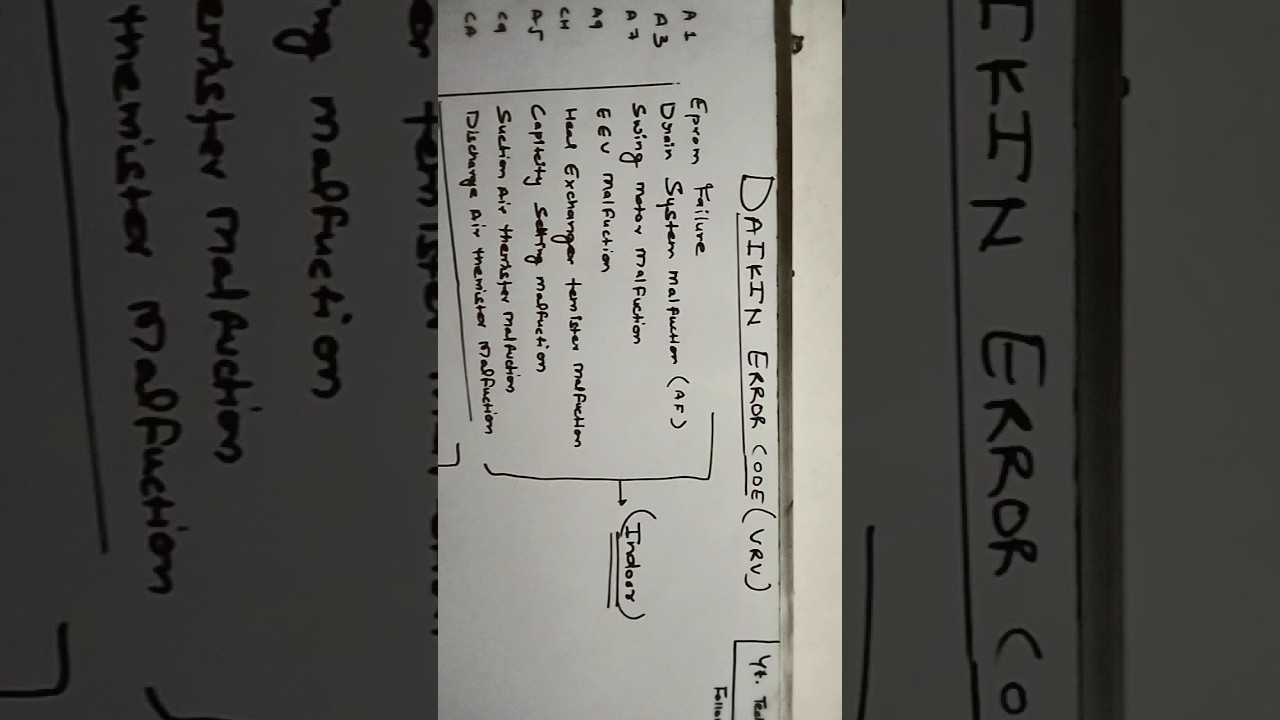 DAIKIN ERROR CODE (VRV)
Yt.
A1 Eprom Failure
A3 Drain System malfuction (AF)
A7 Swing motor malfuction
A9 EEV malfuction
CH Heat Exchanger temister malfuction
A5 Capiteity Setting malfuction
C9 Suction Air themister malfuction
CA Discharge Air themister malfuction
(Indoor)